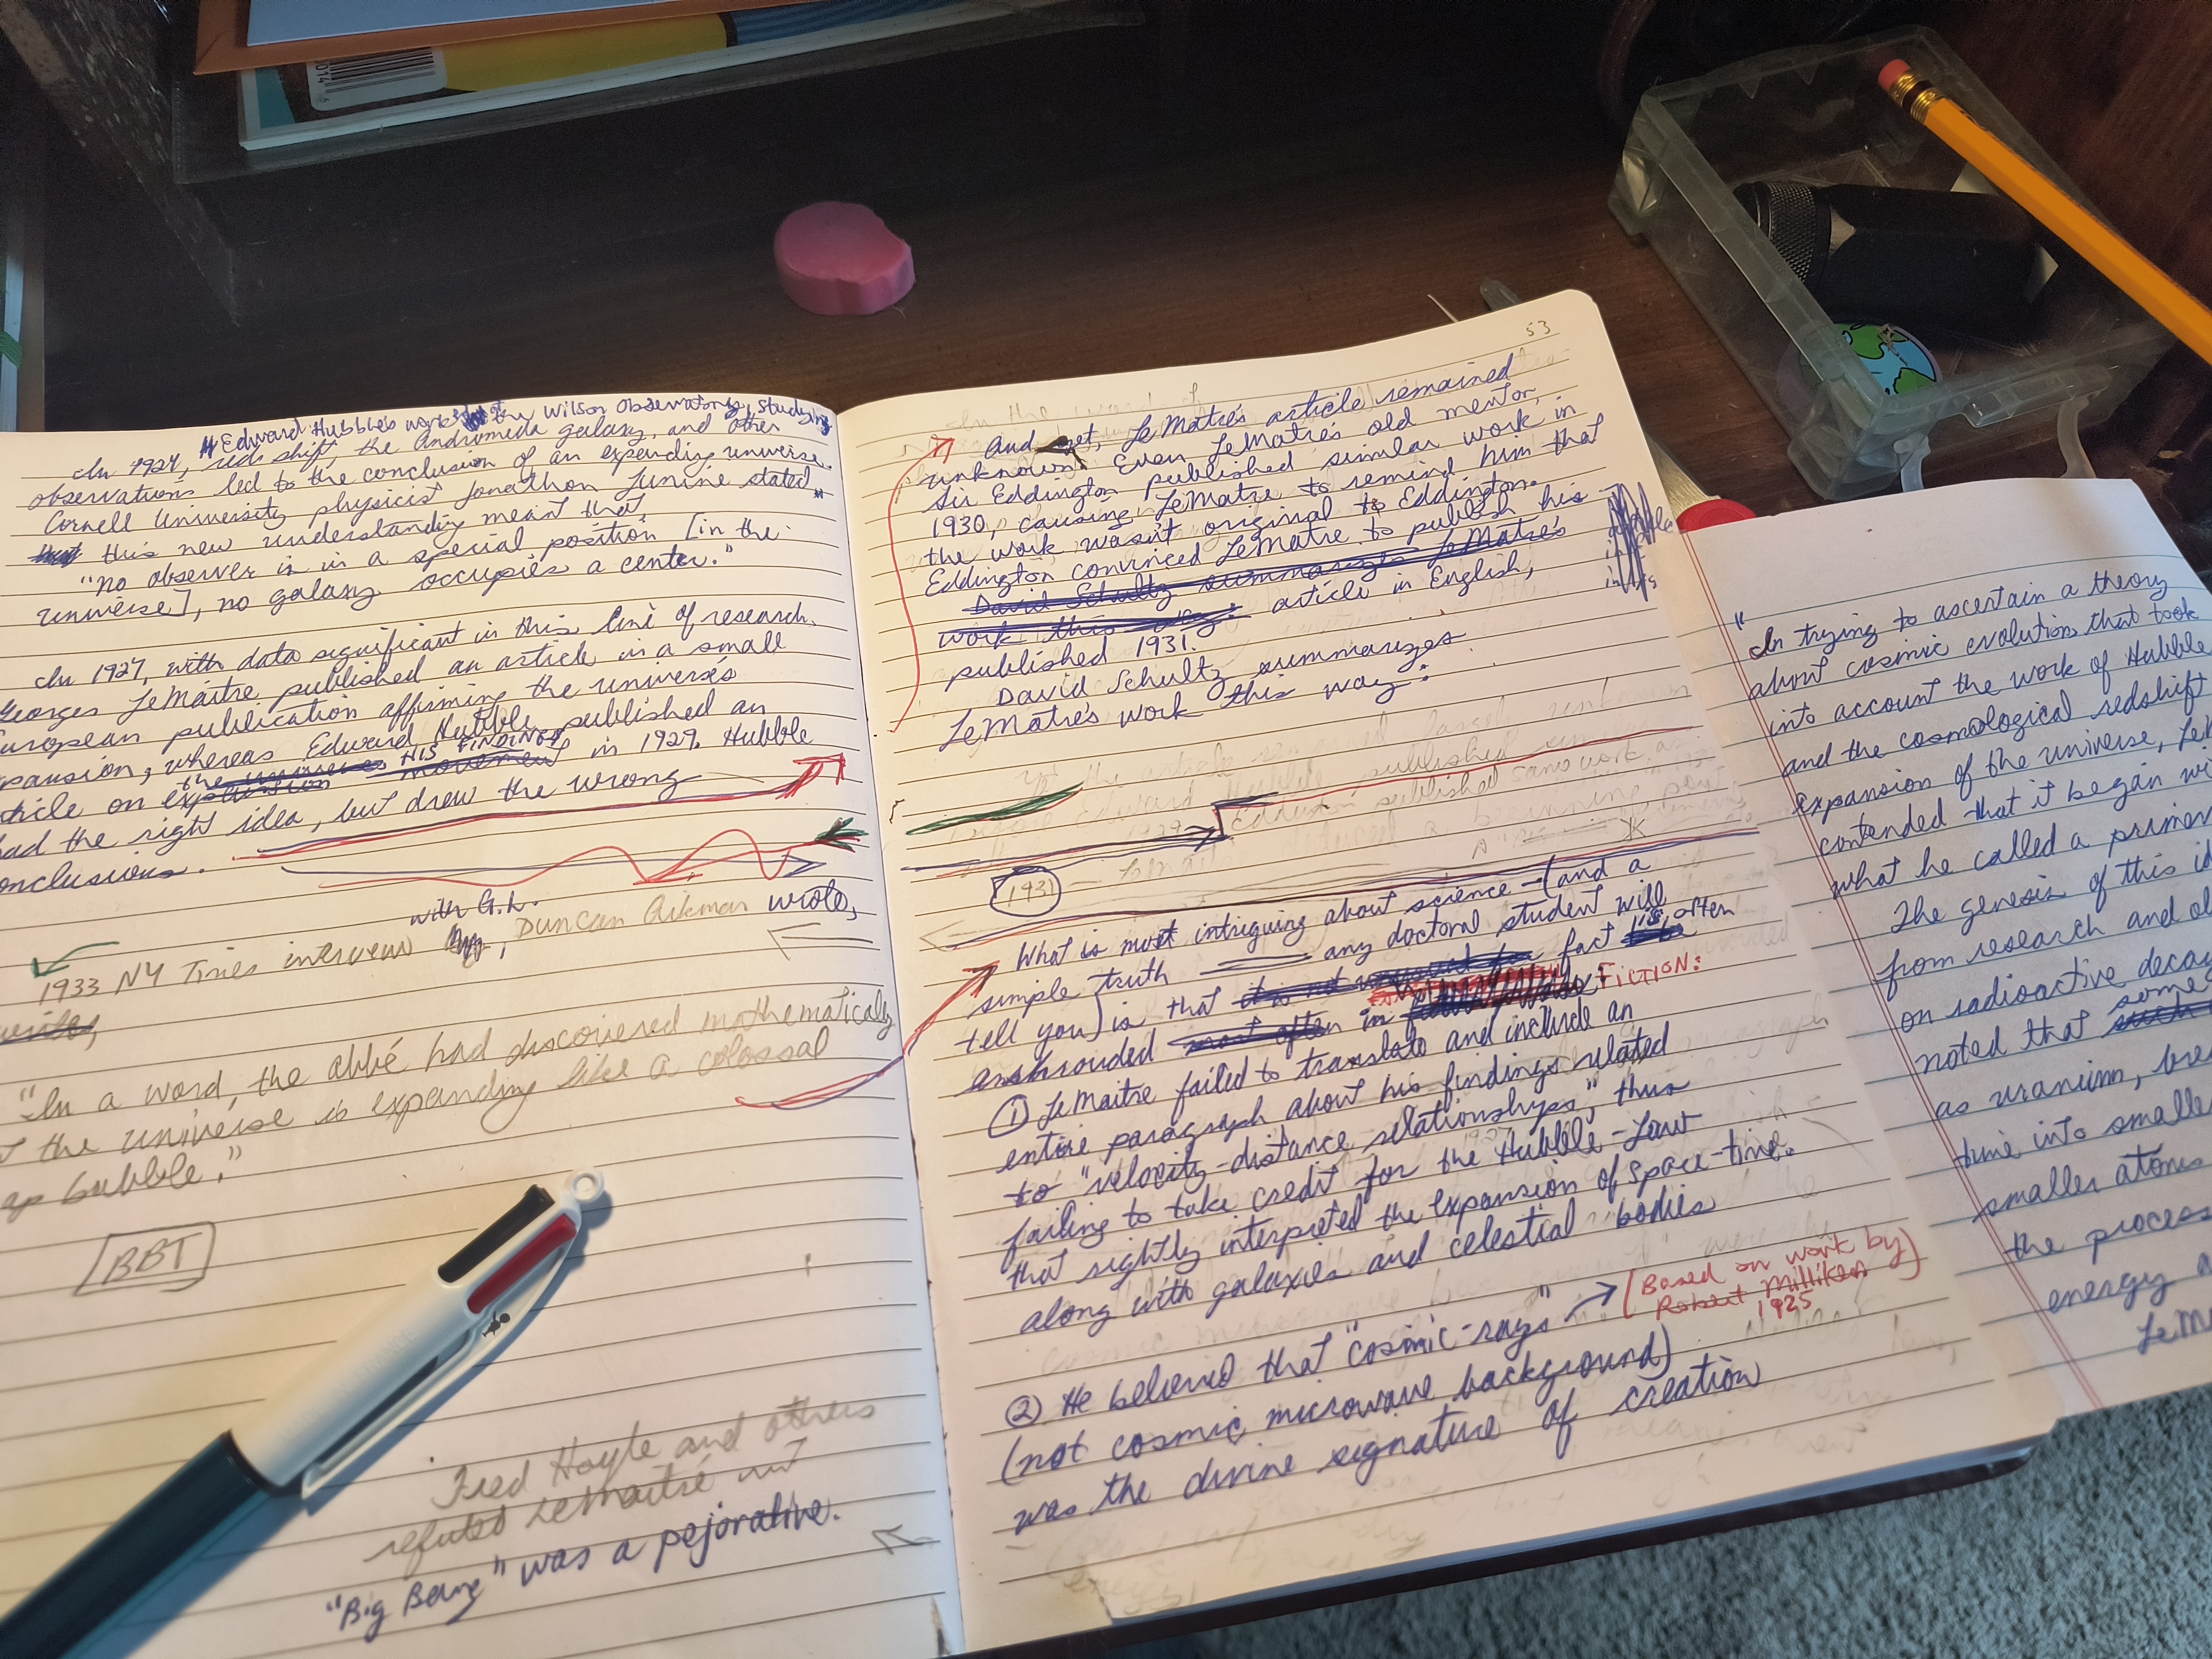 Edward Hubble's work at the Wilson Observatory, studying
In 1924, red shift, the Andromeda galaxy, and other
observations led to the conclusion of an expanding universe.
Cornell University physicist Jonathon Lunine stated,
this new understanding meant that,
"no observer is in a special position [in the
universe], no galaxy occupies a center."
In 1927, with data significant in this line of research,
Georges LeMaitre published an article in a small
European publication affirming the universe's
pansion, whereas Edward Hubble published an
the universes HIS FINDINGS
ticle on expansion movement in 1929. Hubble
had the right idea, but drew the wrong
onclusions.
with G.L.
1933 NY Times interview, Duncan Aikman wrote,
writes,
"In a word, the abbé had discovered mathematically
t the universe is expanding like a colossal
ap bubble."
BBT
Fred Hoyle and others
refuted LeMaitre and
"Big Bang" was a pejorative.
53
And yet, LeMatre's article remained
unknown. Even LeMatre's old mentor,
Sir Eddington published similar work in
1930, causing LeMatre to remind him that
the work wasn't original to Eddington.
Eddington convinced LeMatre to publish his
David Schultz summarizes LeMatre's
work this way: article in English,
published 1931.
David Schultz summarizes
LeMatre's work this way:
1931
What is most intriguing about science - (and a
simple truth any doctoral student will
tell you) is that it is not fact is, often
enshrouded most often in FICTION:
① LeMaitre failed to translate and include an
entire paragraph about his findings related
to "velocity-distance relationships", thus
failing to take credit for the Hubble-Law
that rightly interpreted the expansion of space-time.
along with galaxies and celestial bodies
② He believed that "cosmic-rays" → (Based on work by
Robert Milliken)
1925
(not cosmic microwave background)
was the divine signature of creation
"In trying to ascertain a theory
about cosmic evolution that took
into account the work of Hubble
and the cosmological redshift
expansion of the universe, Le
contended that it began wi
what he called a primev
The genesis of this id
from research and ob
on radioactive deca
noted that such some
as uranium, bre
time into smalle
smaller atoms
the process
energy a
LeM